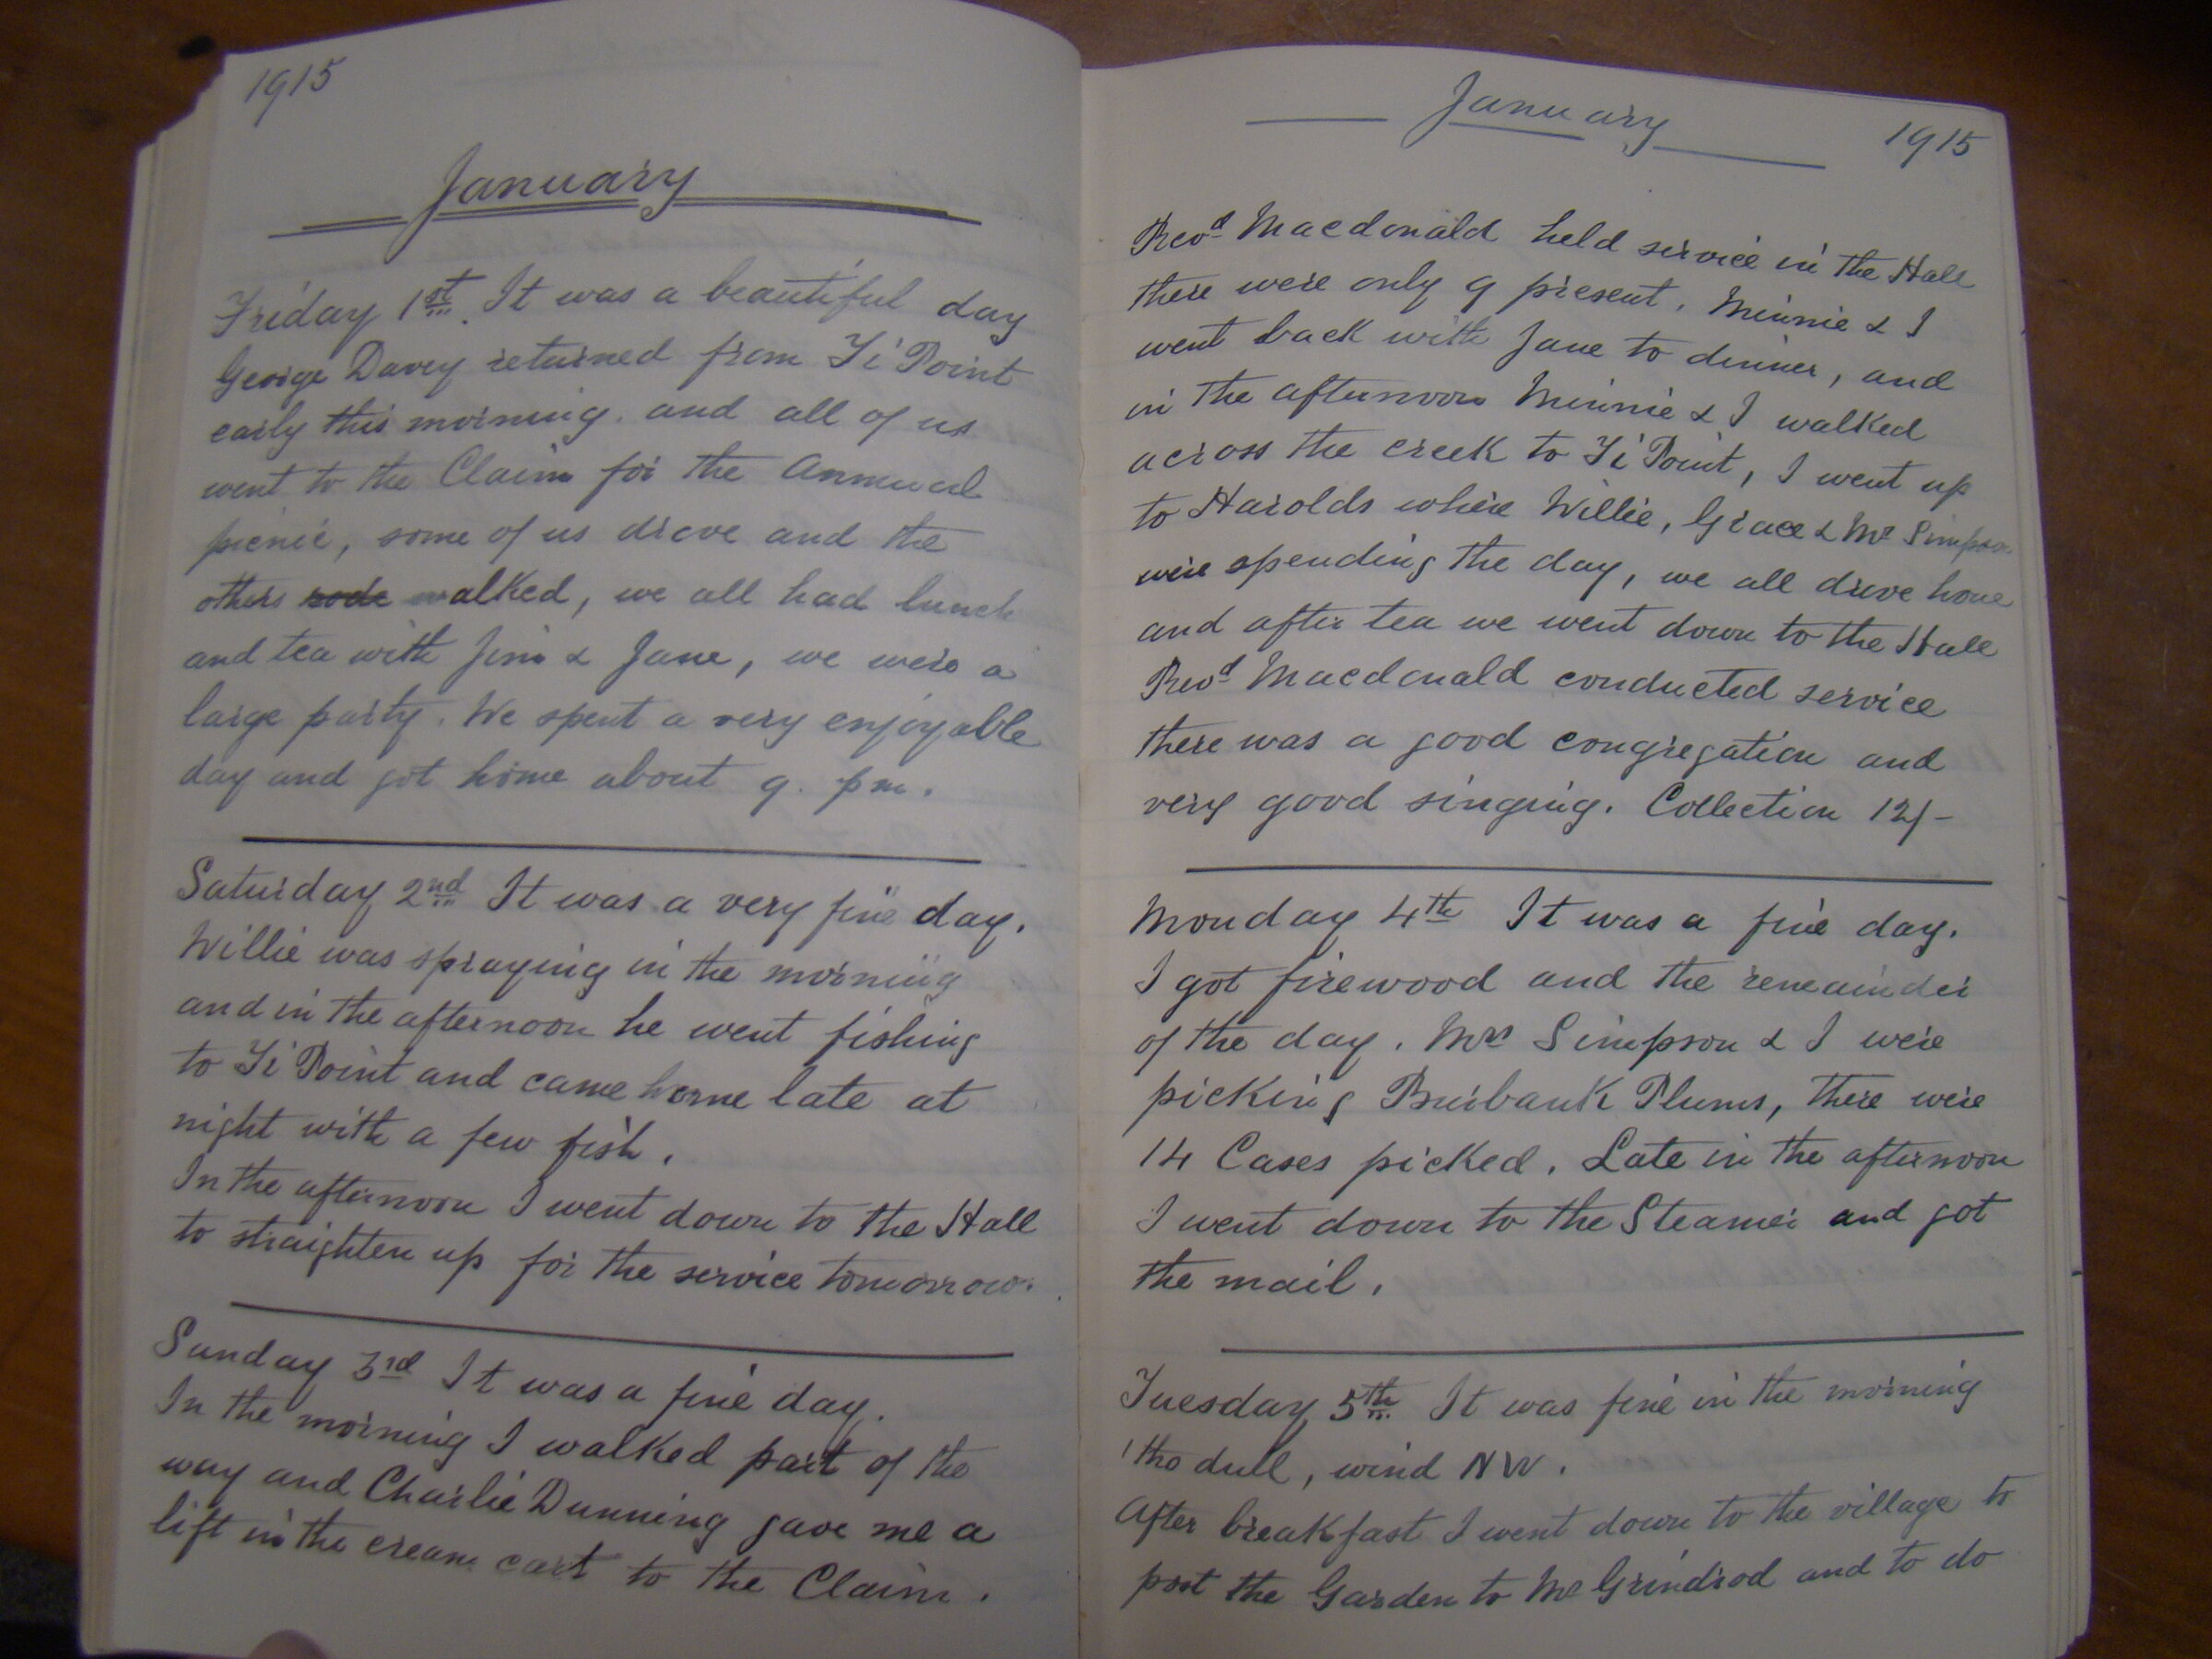 1915
January
Friday 1st. It was a beautiful day
George Davey returned from Ti Point
early this morning. and all of us
went to the Claim for the Annual
picnic, some of us drove and the
others rode walked, we all had lunch
and tea with Jim & Jane, we were a
large party. We spent a very enjoyable
day and got home about 9. pm.
Saturday 2nd It was a very fine day.
Willie was spraying in the morning
and in the afternoon he went fishing
to Ti Point and came home late at
night with a few fish.
In the afternoon I went down to the Hall
to straighten up for the service tomorrow.
Sunday 3rd It was a fine day.
In the morning I walked part of the
way and Charlie Dunning gave me a
lift in the cream cart to the Claim.
January 1915
Revd Macdonald held service in the Hall
there were only 9 present. Minnie & I
went back with Jane to dinner, and
in the afternoon Minnie & I walked
across the creek to Ti Point, I went up
to Harolds where Willie, Grace & Mr Simpson
were spending the day, we all drove home
and after tea we went down to the Hall
Revd Macdonald conducted service
there was a good congregation and
very good singing. Collection 12/-
Monday 4th It was a fine day.
I got firewood and the remainder
of the day. Mrs Simpson & I were
picking Burbank Plums, there were
14 Cases picked. Late in the afternoon
I went down to the Steamer and got
the mail.
Tuesday 5th It was fine in the morning
'tho dull, wind NW.
After breakfast I went down to the village to
post the Garden to Mr Grindrod and to do